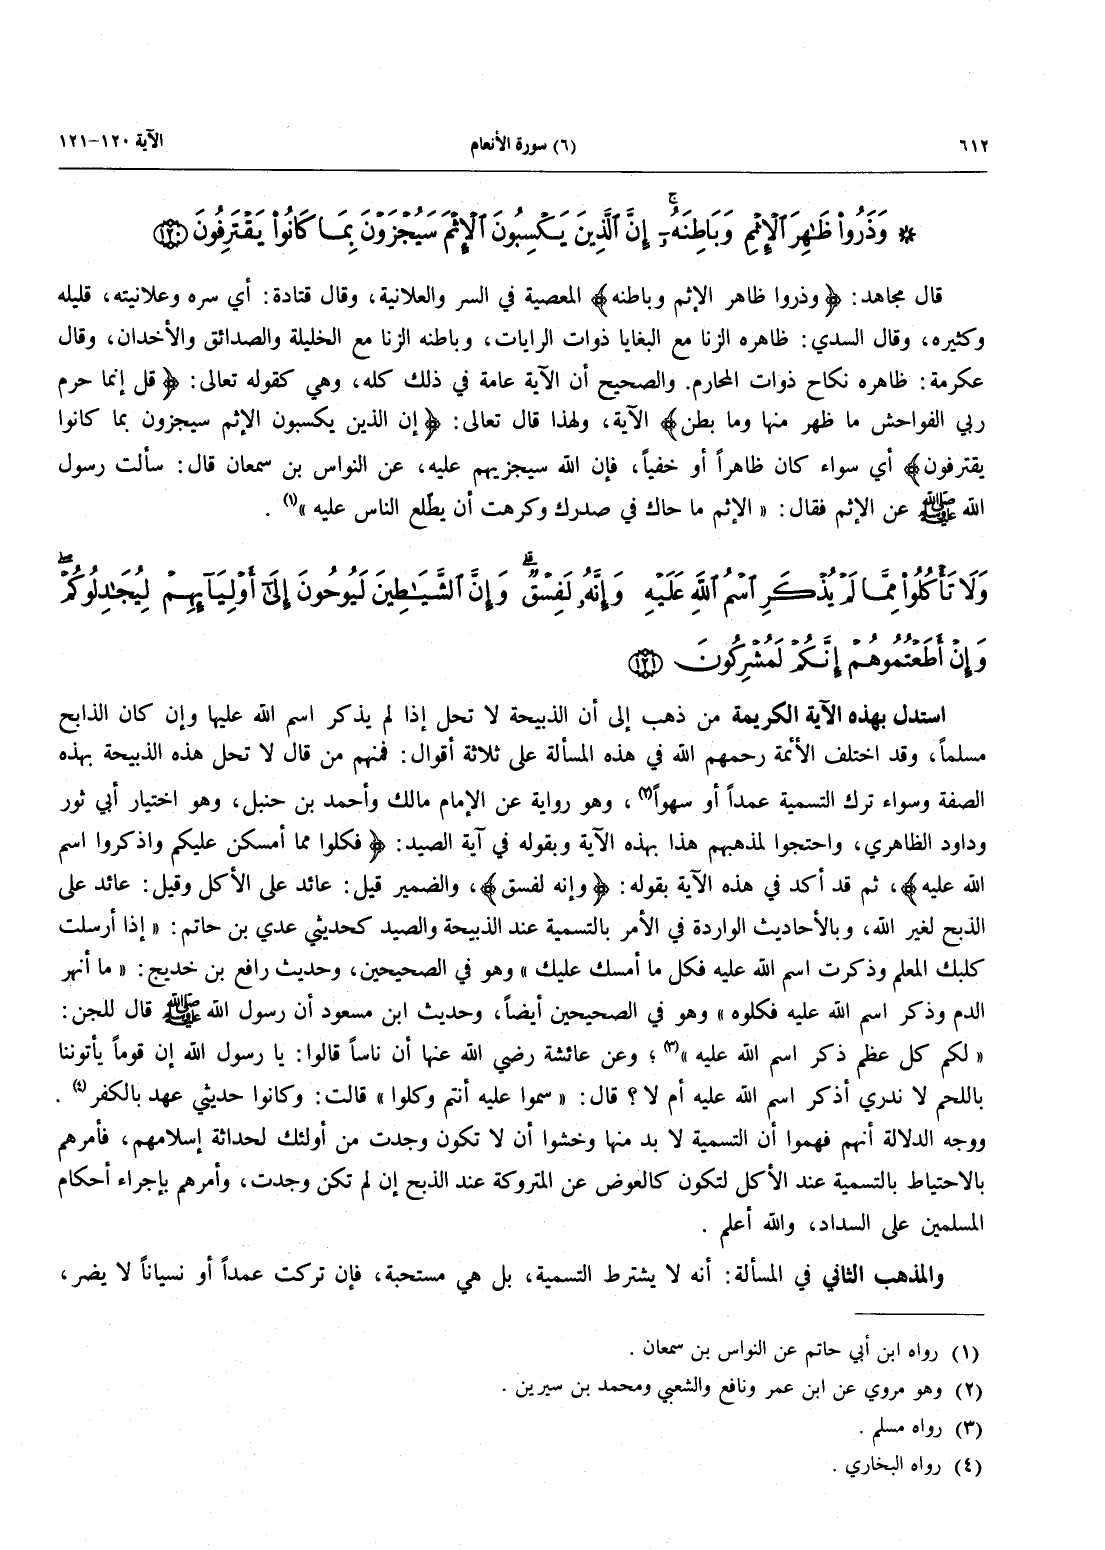 ٦١٢ (٦) سورة الأنعام الآية ١٢٠-١٢١
* وَذَرُوا۟ ظَـٰهِرَ ٱلْإِثْمِ وَبَاطِنَهُۥٓ ۚ إِنَّ ٱلَّذِينَ يَكْسِبُونَ ٱلْإِثْمَ سَيُجْزَوْنَ بِمَا كَانُوا۟ يَقْتَرِفُونَ ﴿١٢٠﴾
قال مجاهد: ﴿ وذروا ظاهر الإثم وباطنه﴾ المعصية في السر والعلانية، وقال قتادة: أي سره وعلانيته، قليله
وكثيره، وقال السدي: ظاهره الزنا مع البغايا ذوات الرايات، وباطنه الزنا مع الخليلة والصدائق والأخدان، وقال
عكرمة: ظاهره نكاح ذوات المحارم. والصحيح أن الآية عامة في ذلك كله، وهي كقوله تعالى: ﴿ قل إنما حرم
ربي الفواحش ما ظهر منها وما بطن﴾ الآية، ولهذا قال تعالى: ﴿إن الذين يكسبون الإثم سيجزون بما كانوا
يقترفون﴾ أي سواء كان ظاهراً أو خفياً، فإن الله سيجزيهم عليه، عن النواس بن سمعان قال: سألت رسول
الله ﷺ عن الإثم فقال: « الإثم ما حاك في صدرك وكرهت أن يطّلع الناس عليه »(١) .
وَلَا تَأْكُلُوا۟ مِمَّا لَمْ يُذْكَرِ ٱسْمُ ٱللَّهِ عَلَيْهِ وَإِنَّهُۥ لَفِسْقٌ ۗ وَإِنَّ ٱلشَّيَـٰطِينَ لَيُوحُونَ إِلَىٰٓ أَوْلِيَآئِهِمْ لِيُجَـٰدِلُوكُمْ ۖ
وَإِنْ أَطَعْتُمُوهُمْ إِنَّكُمْ لَمُشْرِكُونَ ﴿١٢١﴾
استدل بهذه الآية الكريمة من ذهب إلى أن الذبيحة لا تحل إذا لم يذكر اسم الله عليها وإن كان الذابح
مسلماً، وقد اختلف الأئمة رحمهم الله في هذه المسألة على ثلاثة أقوال: فمنهم من قال لا تحل هذه الذبيحة بهذه
الصفة وسواء ترك التسمية عمداً أو سهواً(٢)، وهو رواية عن الإمام مالك وأحمد بن حنبل، وهو اختيار أبي ثور
وداود الظاهري، واحتجوا لمذهبهم هذا بهذه الآية وبقوله في آية الصيد: ﴿ فكلوا مما أمسكن عليكم واذكروا اسم
الله عليه﴾، ثم قد أكد في هذه الآية بقوله: ﴿وإنه لفسق﴾، والضمير قيل: عائد على الأكل وقيل: عائد على
الذبح لغير الله، وبالأحاديث الواردة في الأمر بالتسمية عند الذبيحة والصيد كحديثي عدي بن حاتم: « إذا أرسلت
كلبك المعلم وذكرت اسم الله عليه فكل ما أمسك عليك » وهو في الصحيحين، وحديث رافع بن خديج: « ما أنهر
الدم وذكر اسم الله عليه فكلوه » وهو في الصحيحين أيضاً، وحديث ابن مسعود أن رسول الله ﷺ قال للجن:
« لكم كل عظم ذكر اسم الله عليه »(٣) ؛ وعن عائشة رضي الله عنها أن ناساً قالوا: يا رسول الله إن قوماً يأتوننا
باللحم لا ندري أذكر اسم الله عليه أم لا ؟ قال: « سموا عليه أنتم وكلوا » قالت: وكانوا حديثي عهد بالكفر(٤) .
ووجه الدلالة أنهم فهموا أن التسمية لا بد منها وخشوا أن لا تكون وجدت من أولئك لحداثة إسلامهم، فأمرهم
بالاحتياط بالتسمية عند الأكل لتكون كالعوض عن المتروكة عند الذبح إن لم تكن وجدت، وأمرهم بإجراء أحكام
المسلمين على السداد، والله أعلم .
والمذهب الثاني في المسألة: أنه لا يشترط التسمية، بل هي مستحبة، فإن تركت عمداً أو نسياناً لا يضر،
(١) رواه ابن أبي حاتم عن النواس بن سمعان .
(٢) وهو مروي عن ابن عمر ونافع والشعبي ومحمد بن سيرين .
(٣) رواه مسلم .
(٤) رواه البخاري .